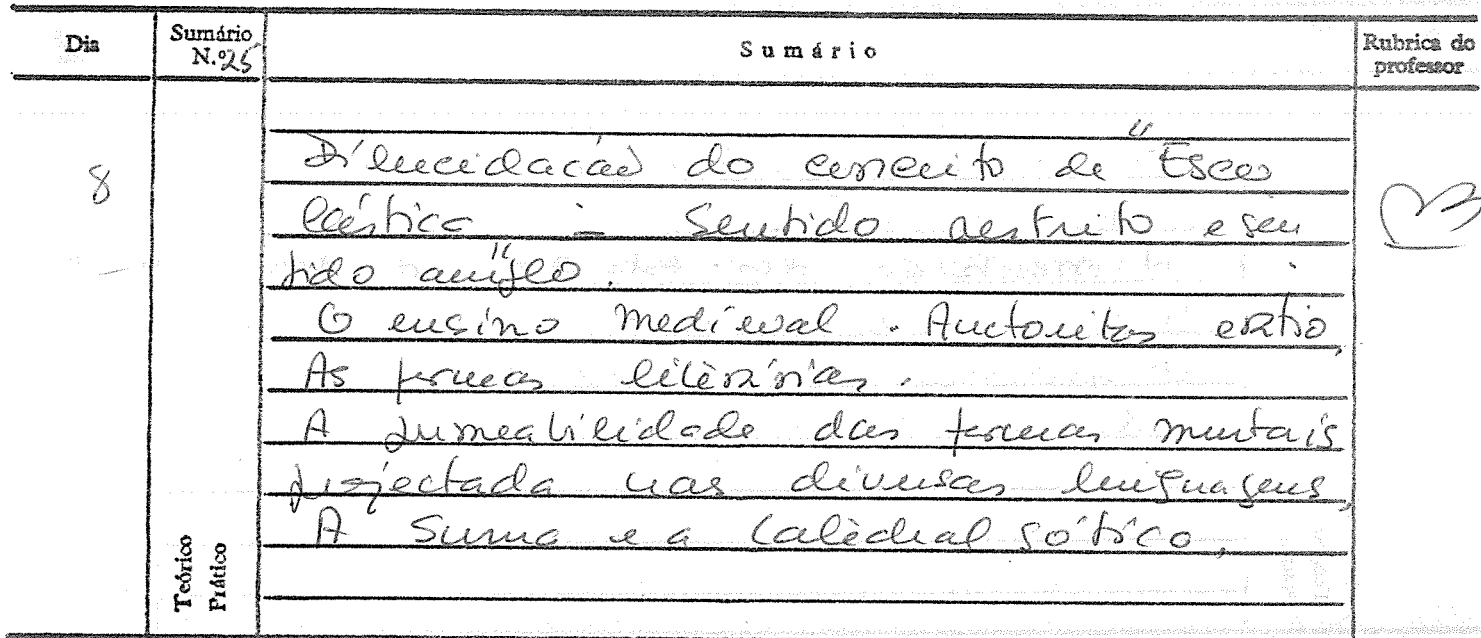 Dia
Sumário N.º 25
Sumário
Rubrica do professor
8
Dilucidação do conceito de "Esco
lástica" – Sentido restrito e sen
tido amplo.
O ensino medieval. Auctoritas e ratio.
As formas literárias.
A permeabilidade das formas mentais
projectada nas diversas linguagens.
A Suma e a Catedral gótica.
Teórico
Prático